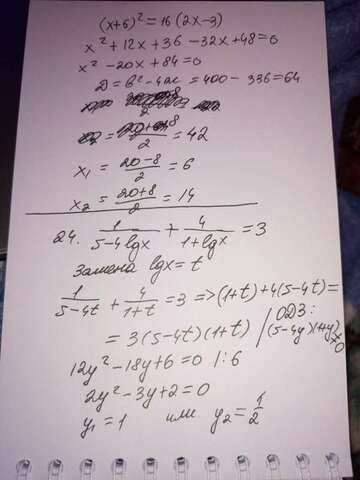 (x+6)² = 16(2x-3)
x² + 12x + 36 - 32x + 48 = 0
x² - 20x + 84 = 0
D = b² - 4ac = 400 - 336 = 64
= 42
x₁ = (20-8)/2 = 6
x₂ = (20+8)/2 = 14
24. 1/(5-4lgx) + 4/(1+lgx) = 3
Замена lgx = t
1/(5-4t) + 4/(1+t) = 3 => (1+t) + 4(5-4t) =
= 3(5-4t)(1+t) / ОДЗ: (5-4y)(1+y) ≠ 0
12y² - 18y + 6 = 0 | :6
2y² - 3y + 2 = 0
y₁ = 1 или y₂ = 1/2